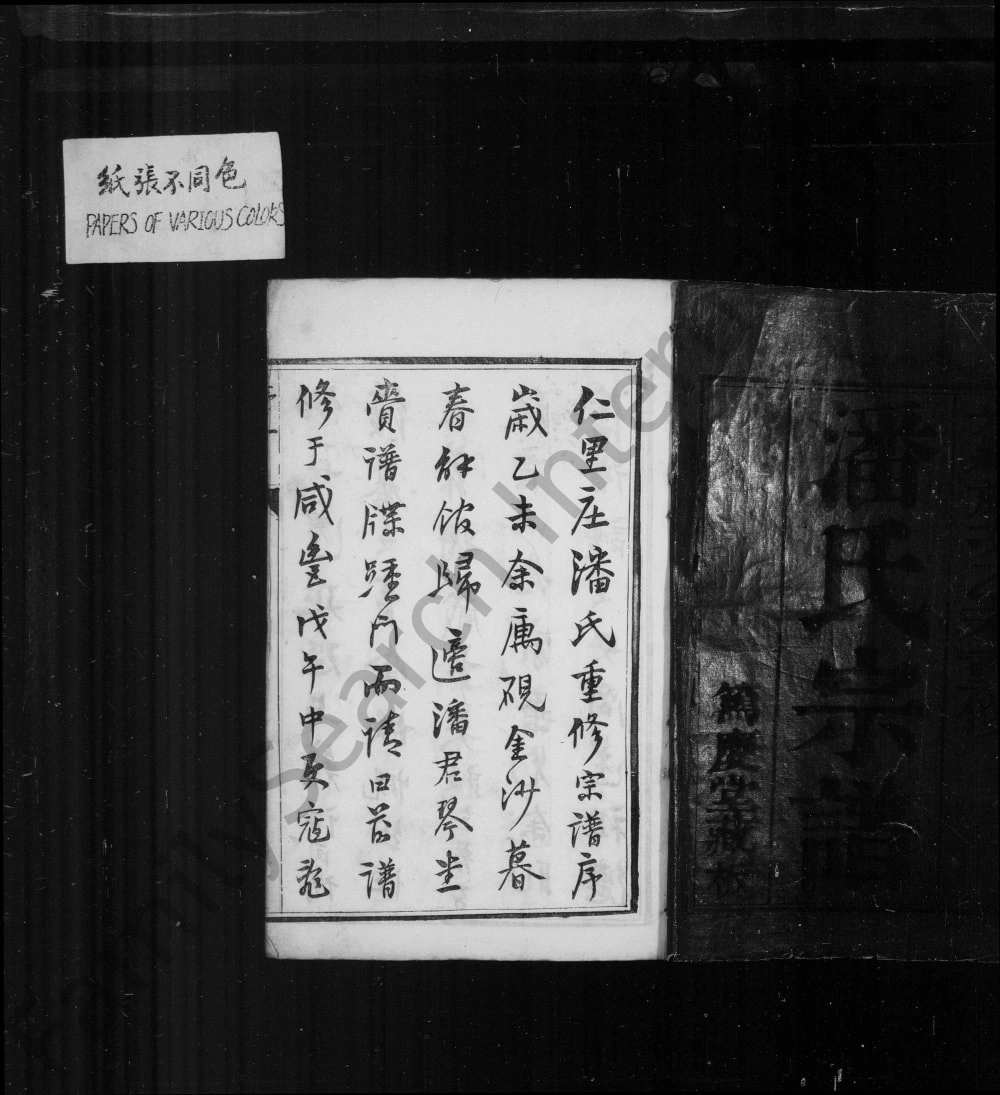 紙張不同色
PAPERS OF VARIOUS COLORS
潘氏宗譜
篤慶堂藏板
仁里庄潘氏重修宗譜序
歲乙未余属硯金沙暮
春解馆歸適潘君琴
賫譜牒踵门而请曰譜
修于咸豐戊午中更寇亂